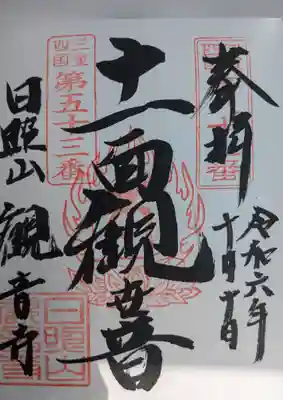 奉拝
令和六年
十月十日
十一面観世音
三重
四国
第五十三番
日照山 観音寺